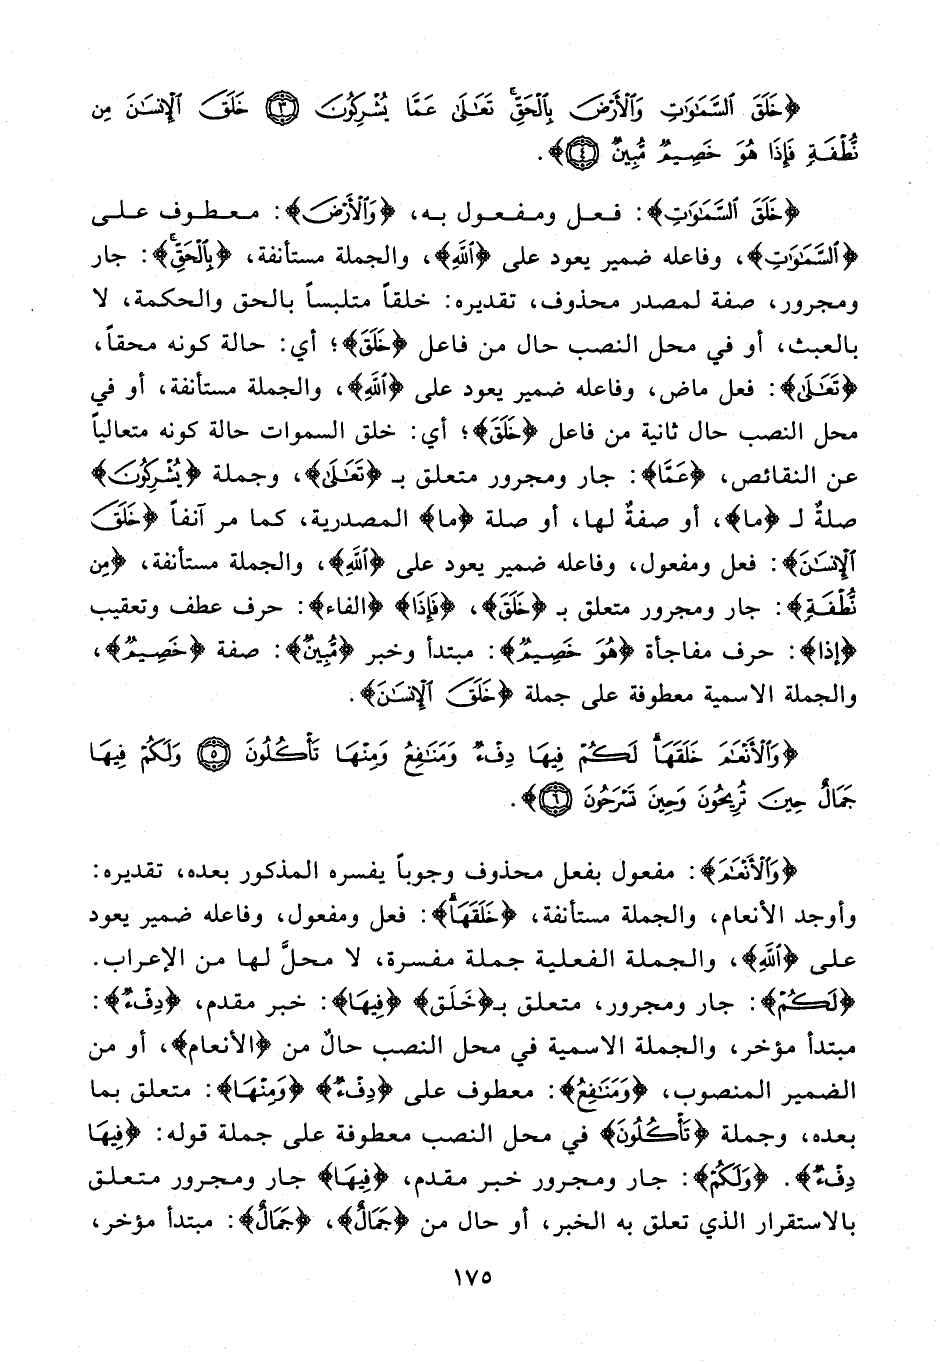 ﴿خَلَقَ ٱلسَّمَٰوَٰتِ وَٱلْأَرْضَ بِٱلْحَقِّ ۚ تَعَٰلَىٰ عَمَّا يُشْرِكُونَ ٣ خَلَقَ ٱلْإِنسَٰنَ مِن
نُّطْفَةٍ فَإِذَا هُوَ خَصِيمٌ مُّبِينٌ ٤﴾.
﴿خَلَقَ ٱلسَّمَٰوَٰتِ﴾: فعل ومفعول به، ﴿وَٱلْأَرْضَ﴾: معطوف على
﴿ٱلسَّمَٰوَٰتِ﴾، وفاعله ضمير يعود على ﴿ٱللَّهِ﴾، والجملة مستأنفة، ﴿بِٱلْحَقِّ ۚ﴾: جار
ومجرور، صفة لمصدر محذوف، تقديره: خلقاً متلبساً بالحق والحكمة، لا
بالعبث، أو في محل النصب حال من فاعل ﴿خَلَقَ﴾؛ أي: حالة كونه محقاً،
﴿تَعَٰلَىٰ﴾: فعل ماض، وفاعله ضمير يعود على ﴿ٱللَّهِ﴾، والجملة مستأنفة، أو في
محل النصب حال ثانية من فاعل ﴿خَلَقَ﴾؛ أي: خلق السموات حالة كونه متعالياً
عن النقائص، ﴿عَمَّا﴾: جار ومجرور متعلق بـ ﴿تَعَٰلَىٰ﴾، وجملة ﴿يُشْرِكُونَ﴾
صلةٌ لـ ﴿ما﴾، أو صفةٌ لها، أو صلة ﴿ما﴾ المصدرية، كما مر آنفاً ﴿خَلَقَ
ٱلْإِنسَٰنَ﴾: فعل ومفعول، وفاعله ضمير يعود على ﴿ٱللَّهِ﴾، والجملة مستأنفة، ﴿مِن
نُّطْفَةٍ﴾: جار ومجرور متعلق بـ ﴿خَلَقَ﴾، ﴿فَإِذَا﴾ ﴿الفاء﴾: حرف عطف وتعقيب
﴿إذا﴾: حرف مفاجأة ﴿هُوَ خَصِيمٌ﴾: مبتدأ وخبر ﴿مُّبِينٌ﴾: صفة ﴿خَصِيمٌ﴾،
والجملة الاسمية معطوفة على جملة ﴿خَلَقَ ٱلْإِنسَٰنَ﴾.
﴿وَٱلْأَنْعَٰمَ خَلَقَهَا ۗ لَكُمْ فِيهَا دِفْءٌ وَمَنَٰفِعُ وَمِنْهَا تَأْكُلُونَ ٥ وَلَكُمْ فِيهَا
جَمَالٌ حِينَ تُرِيحُونَ وَحِينَ تَسْرَحُونَ ٦﴾.
﴿وَٱلْأَنْعَٰمَ﴾: مفعول بفعل محذوف وجوباً يفسره المذكور بعده، تقديره:
وأوجد الأنعام، والجملة مستأنفة، ﴿خَلَقَهَا ۗ﴾: فعل ومفعول، وفاعله ضمير يعود
على ﴿ٱللَّهِ﴾، والجملة الفعلية جملة مفسرة، لا محلَّ لها من الإعراب.
﴿لَكُمْ﴾: جار ومجرور، متعلق بـ﴿خَلَق﴾ ﴿فِيهَا﴾: خبر مقدم، ﴿دِفْءٌ﴾:
مبتدأ مؤخر، والجملة الاسمية في محل النصب حالٌ من ﴿الأنعام﴾، أو من
الضمير المنصوب، ﴿وَمَنَٰفِعُ﴾: معطوف على ﴿دِفْءٌ﴾ ﴿وَمِنْهَا﴾: متعلق بما
بعده، وجملة ﴿تَأْكُلُونَ﴾ في محل النصب معطوفة على جملة قوله: ﴿فِيهَا
دِفْءٌ﴾. ﴿وَلَكُمْ﴾: جار ومجرور خبر مقدم، ﴿فِيهَا﴾ جار ومجرور متعلق
بالاستقرار الذي تعلق به الخبر، أو حال من ﴿جَمَالٌ﴾، ﴿جَمَالٌ﴾: مبتدأ مؤخر،
١٧٥